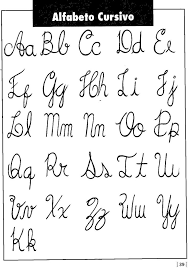 Alfabeto Cursivo
Aa Bb Cc Dd Ee
Ff Gg Hh Ii Jj
Ll Mm Nn Oo Pp
Qq Rr Ss Tt Uu
Vv Xx Zz Ww Yy
Kk